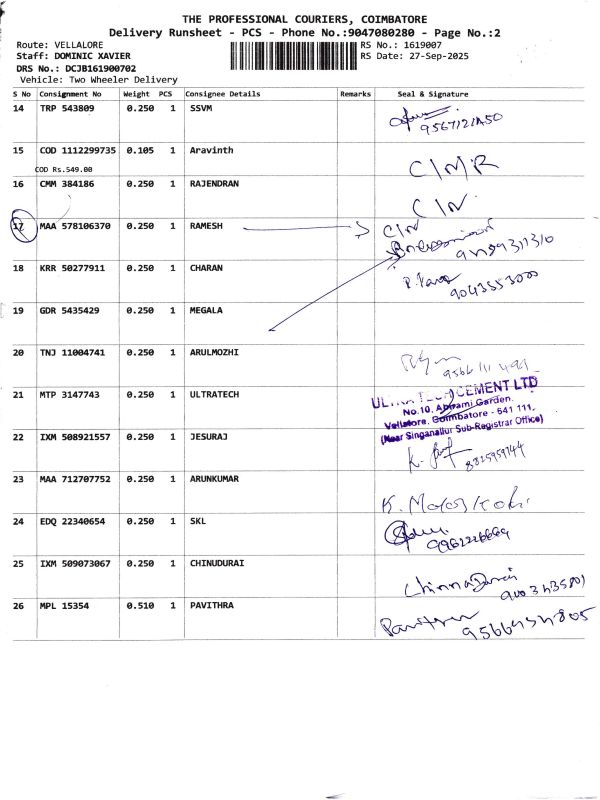 THE PROFESSIONAL COURIERS, COIMBATORE
Delivery Runsheet - PCS - Phone No.:9047080280 - Page No.:2
Route: VELLALORE
RS No.: 1619007
Staff: DOMINIC XAVIER
RS Date: 27-Sep-2025
DRS No.: DCJB161900702
Vehicle: Two Wheeler Delivery
S No Consignment No Weight PCS Consignee Details Remarks Seal & Signature
14 TRP 543809 0.250 1 SSVM
15 COD 1112299735 0.105 1 Aravinth
COD Rs.549.00
16 CMM 384186 0.250 1 RAJENDRAN
17 MAA 578106370 0.250 1 RAMESH
18 KRR 50277911 0.250 1 CHARAN
9043553000
19 GDR 5435429 0.250 1 MEGALA
20 TNJ 11004741 0.250 1 ARULMOZHI
21 MTP 3147743 0.250 1 ULTRATECH
ULTRATECH CEMENT LTD
No.10, Abirami Garden,
Vellalore, Coimbatore - 641 111.
(Near Singanallur Sub-Registrar Office)
22 IXM 508921557 0.250 1 JESURAJ
8825959744
23 MAA 712707752 0.250 1 ARUNKUMAR
24 EDQ 22340654 0.250 1 SKL
25 IXM 509073067 0.250 1 CHINUDURAI
26 MPL 15354 0.510 1 PAVITHRA